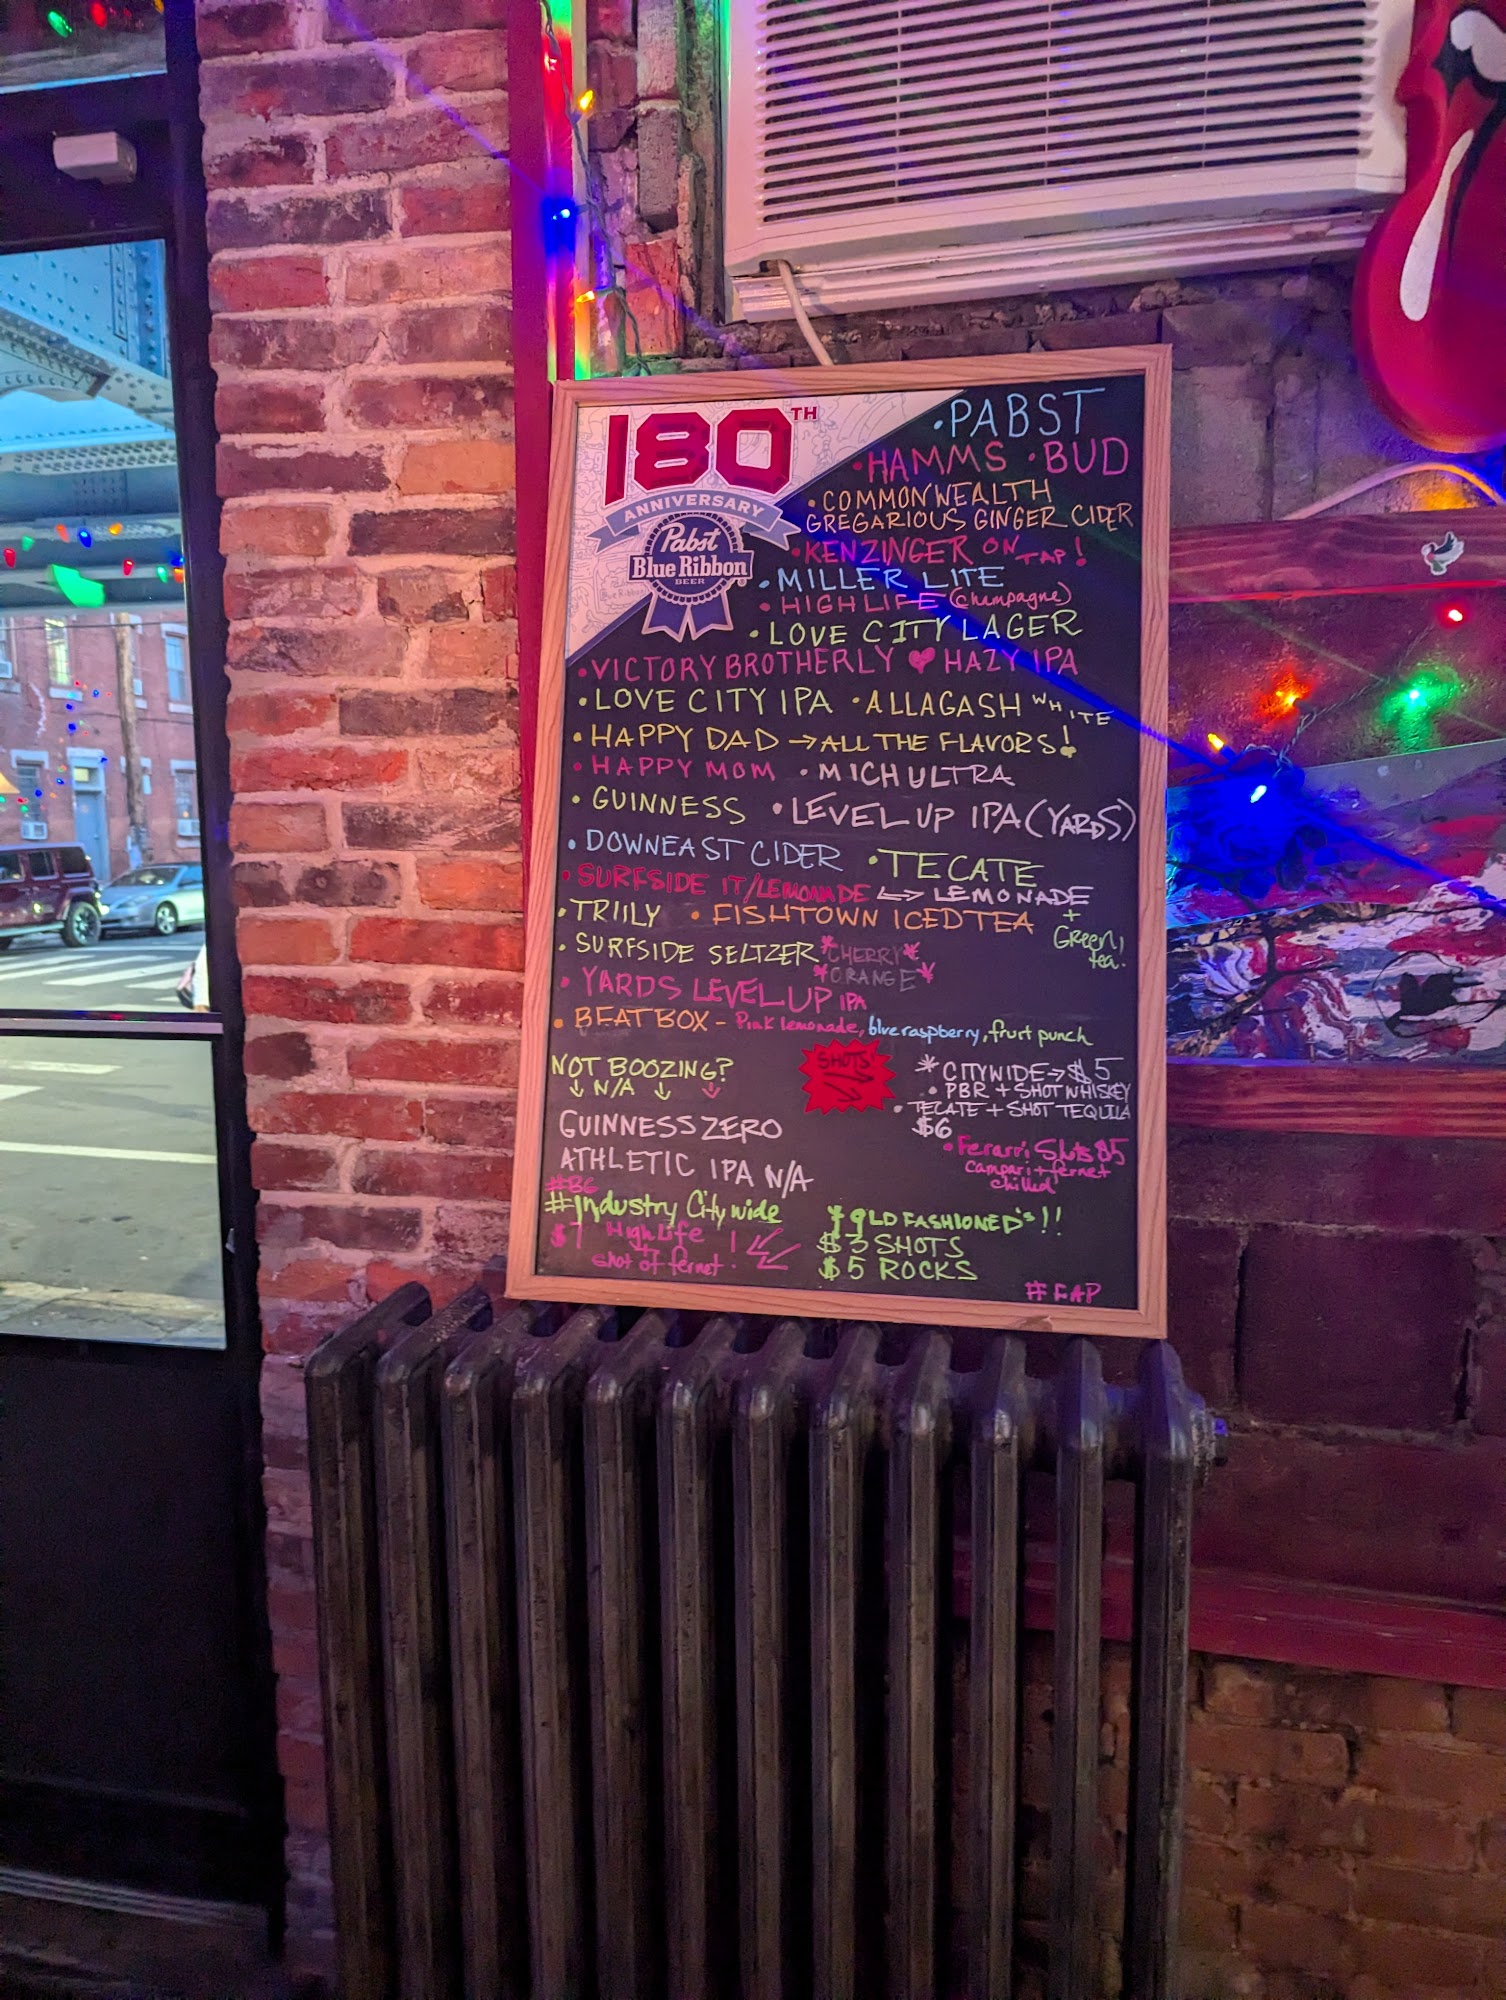 180TH
ANNIVERSARY
Pabst
Blue Ribbon
BEER
• PABST
• HAMMS • BUD
• COMMONWEALTH
GREGARIOUS GINGER CIDER
• KENZINGER ON TAP!
• MILLER LITE
• HIGHLIFE (Champagne)
• LOVE CITY LAGER
• VICTORY BROTHERLY ♥ HAZY IPA
• LOVE CITY IPA • ALLAGASH WHITE
• HAPPY DAD → ALL THE FLAVORS!
• HAPPY MOM • MICH ULTRA
• GUINNESS • LEVEL UP IPA (YARDS)
• DOWNEAST CIDER • TECATE
• SURFSIDE IT/LEMONADE ↔ LEMONADE
+
Green
tea.
• TRIILY • FISHTOWN ICED TEA
• SURFSIDE SELTZER *CHERRY*
*ORANGE*
• YARDS LEVEL UP IPA
• BEATBOX - Pink lemonade, blue raspberry, fruit punch
NOT BOOZING?
↓ N/A ↓ ↓
GUINNESS ZERO
ATHLETIC IPA N/A
#BG
#Industry City wide
$7 High Life
+
shot of fernet!
SHOTS!
* CITYWIDE → $5
• PBR + SHOT WHISKEY
• TECATE + SHOT TEQUILA
$6
• Ferarri Shots $5
Campari + fernet
chilled
* OLD FASHIONED's!!
$3 SHOTS
$5 ROCKS
#FAP